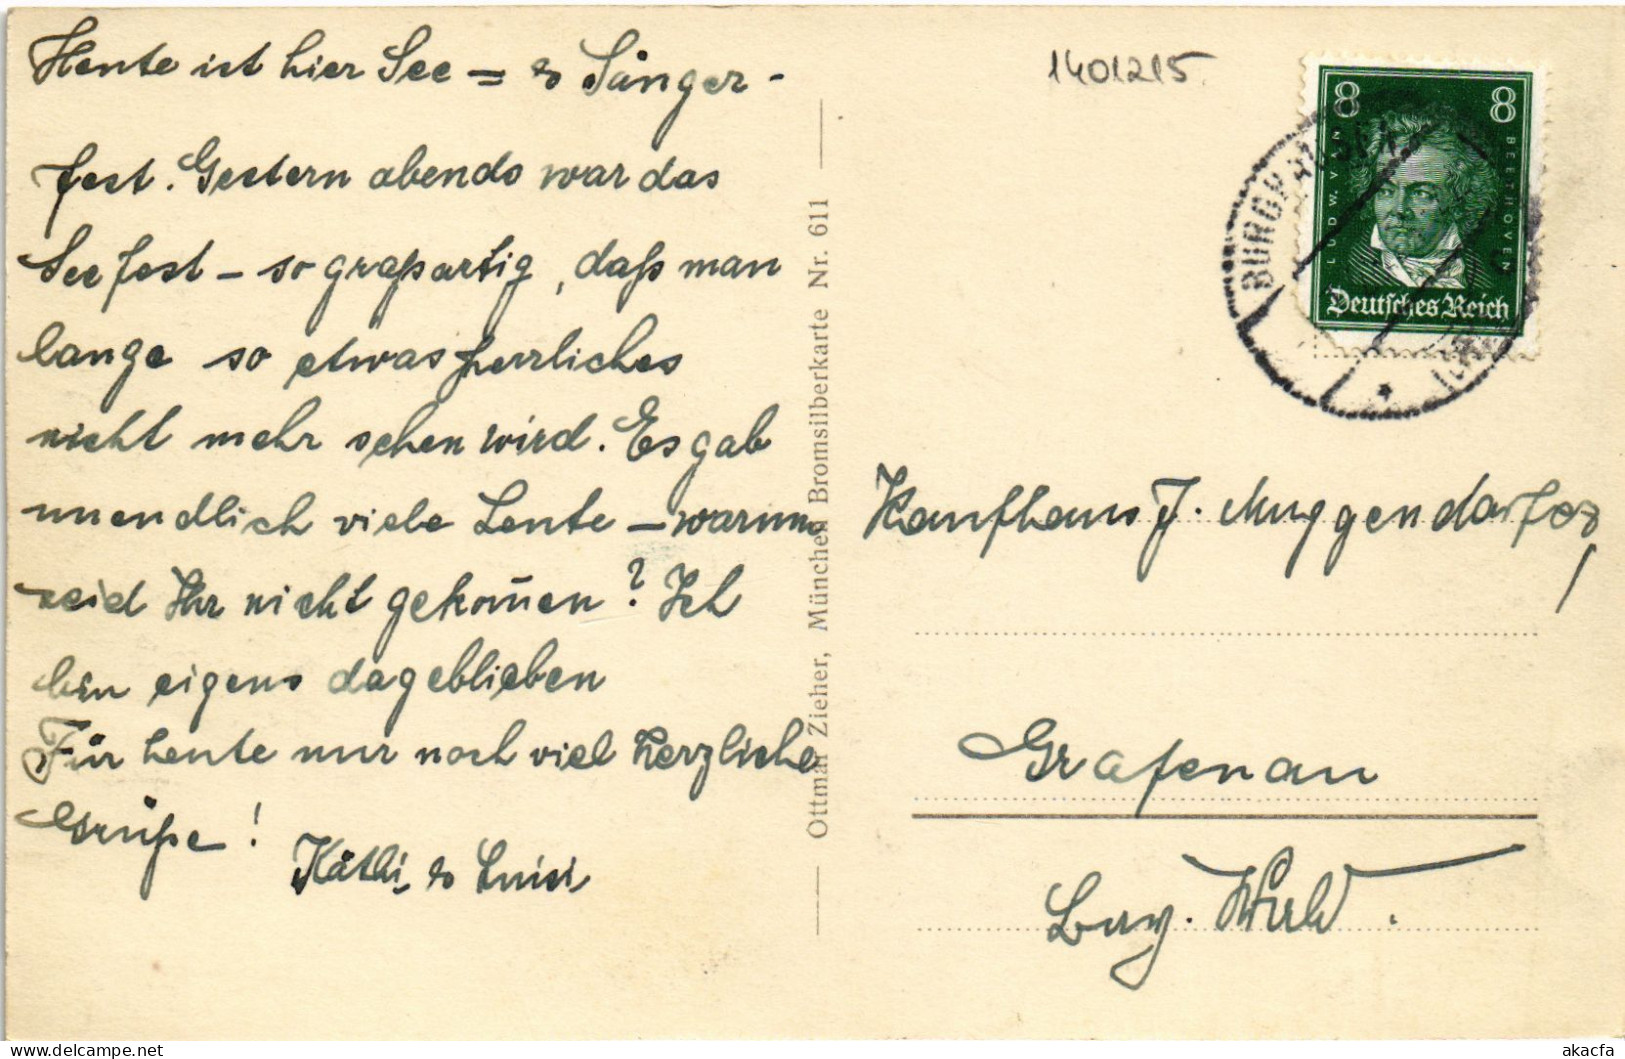 Heute ist hier See = & Sänger-
fest. Gestern abends war das
Seefest – so großartig, daß man
lange so etwas herrliches
nicht mehr sehen wird. Es gab
unendlich viele Leute – warum
seid Ihr nicht gekom̄en? Ich
bin eigens dageblieben
Für heute nur noch viel herzliche
Grüße!
Käthi, & Luisi
Ottmar Zieher, München Bromsilberkarte Nr. 611
1401215
8 8
LUDW. VAN
BEETHOVEN
Deutsches Reich
BURGHAUSEN
Kaufhaus J. Muggendorfer,
Grafenau
Bay. Wald.
akacfa